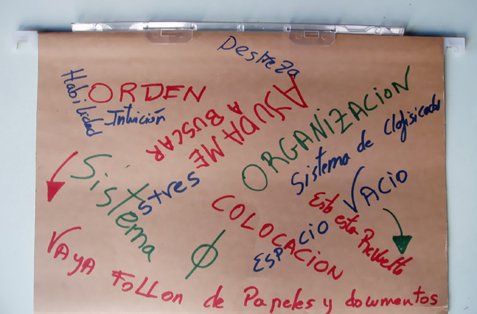 Destreza
Habilidad
ORDEN
Intuición
AYUDAME
A BUSCAR
ORGANIZACION
Sistema de Clasificador
Sistema
stres
COLOCACION
ESPACIO VACIO
Esto esta Revuelto
Ø
VAYA FOLLON de Papeles y documentos